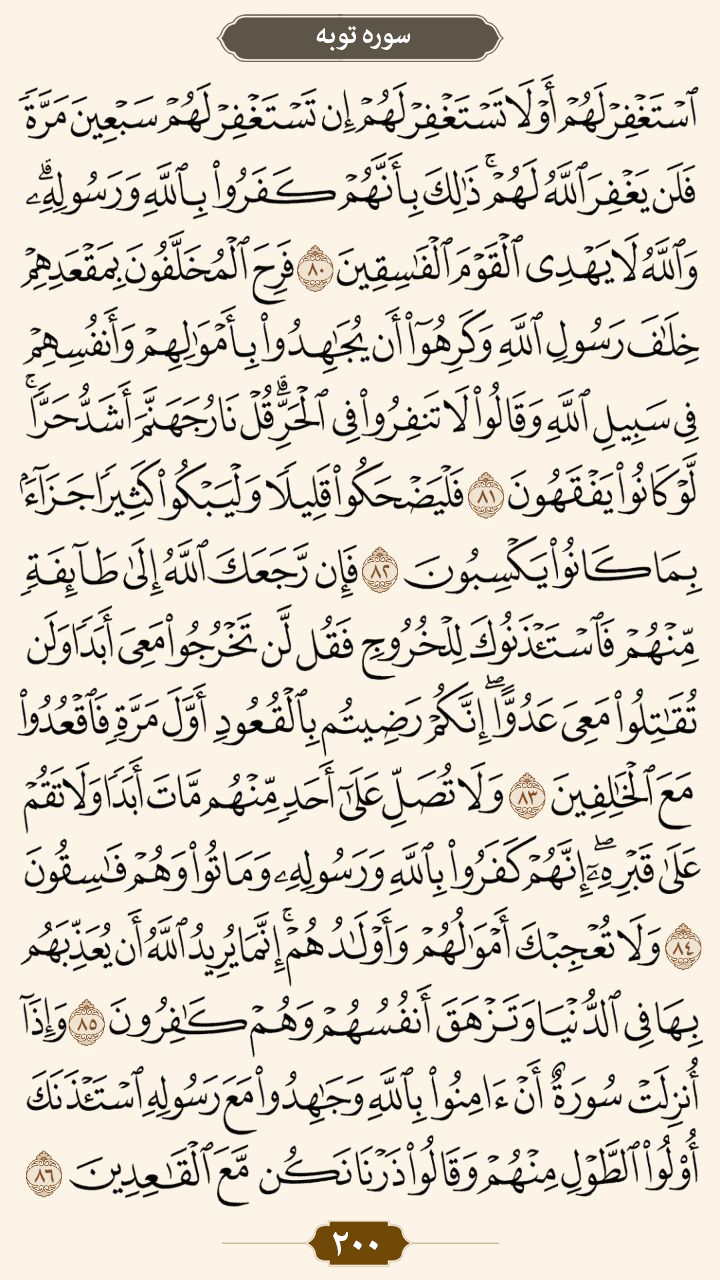 سوره توبه
ٱسۡتَغۡفِرۡ لَهُمۡ أَوۡ لَا تَسۡتَغۡفِرۡ لَهُمۡ إِن تَسۡتَغۡفِرۡ لَهُمۡ سَبۡعِينَ مَرَّةٗ
فَلَن يَغۡفِرَ ٱللَّهُ لَهُمۡۚ ذَٰلِكَ بِأَنَّهُمۡ كَفَرُواْ بِٱللَّهِ وَرَسُولِهِۦۗ
وَٱللَّهُ لَا يَهۡدِي ٱلۡقَوۡمَ ٱلۡفَٰسِقِينَ ٨٠ فَرِحَ ٱلۡمُخَلَّفُونَ بِمَقۡعَدِهِمۡ
خِلَٰفَ رَسُولِ ٱللَّهِ وَكَرِهُوٓاْ أَن يُجَٰهِدُواْ بِأَمۡوَٰلِهِمۡ وَأَنفُسِهِمۡ
فِي سَبِيلِ ٱللَّهِ وَقَالُواْ لَا تَنفِرُواْ فِي ٱلۡحَرِّۗ قُلۡ نَارُ جَهَنَّمَ أَشَدُّ حَرّٗاۚ
لَّوۡ كَانُواْ يَفۡقَهُونَ ٨١ فَلۡيَضۡحَكُواْ قَلِيلٗا وَلۡيَبۡكُواْ كَثِيرٗا جَزَآءَۢ
بِمَا كَانُواْ يَكۡسِبُونَ ٨٢ فَإِن رَّجَعَكَ ٱللَّهُ إِلَىٰ طَآئِفَةٖ
مِّنۡهُمۡ فَٱسۡتَـٔۡذَنُوكَ لِلۡخُرُوجِ فَقُل لَّن تَخۡرُجُواْ مَعِيَ أَبَدٗا وَلَن
تُقَٰتِلُواْ مَعِيَ عَدُوًّاۖ إِنَّكُمۡ رَضِيتُم بِٱلۡقُعُودِ أَوَّلَ مَرَّةٖ فَٱقۡعُدُواْ
مَعَ ٱلۡخَٰلِفِينَ ٨٣ وَلَا تُصَلِّ عَلَىٰٓ أَحَدٖ مِّنۡهُم مَّاتَ أَبَدٗا وَلَا تَقُمۡ
عَلَىٰ قَبۡرِهِۦٓۖ إِنَّهُمۡ كَفَرُواْ بِٱللَّهِ وَرَسُولِهِۦ وَمَاتُواْ وَهُمۡ فَٰسِقُونَ
٨٤ وَلَا تُعۡجِبۡكَ أَمۡوَٰلُهُمۡ وَأَوۡلَٰدُهُمۡۚ إِنَّمَا يُرِيدُ ٱللَّهُ أَن يُعَذِّبَهُم
بِهَا فِي ٱلدُّنۡيَا وَتَزۡهَقَ أَنفُسُهُمۡ وَهُمۡ كَٰفِرُونَ ٨٥ وَإِذَآ
أُنزِلَتۡ سُورَةٌ أَنۡ ءَامِنُواْ بِٱللَّهِ وَجَٰهِدُواْ مَعَ رَسُولِهِ ٱسۡتَـٔۡذَنَكَ
أُوْلُواْ ٱلطَّوۡلِ مِنۡهُمۡ وَقَالُواْ ذَرۡنَا نَكُن مَّعَ ٱلۡقَٰعِدِينَ ٨٦
٢٠٠